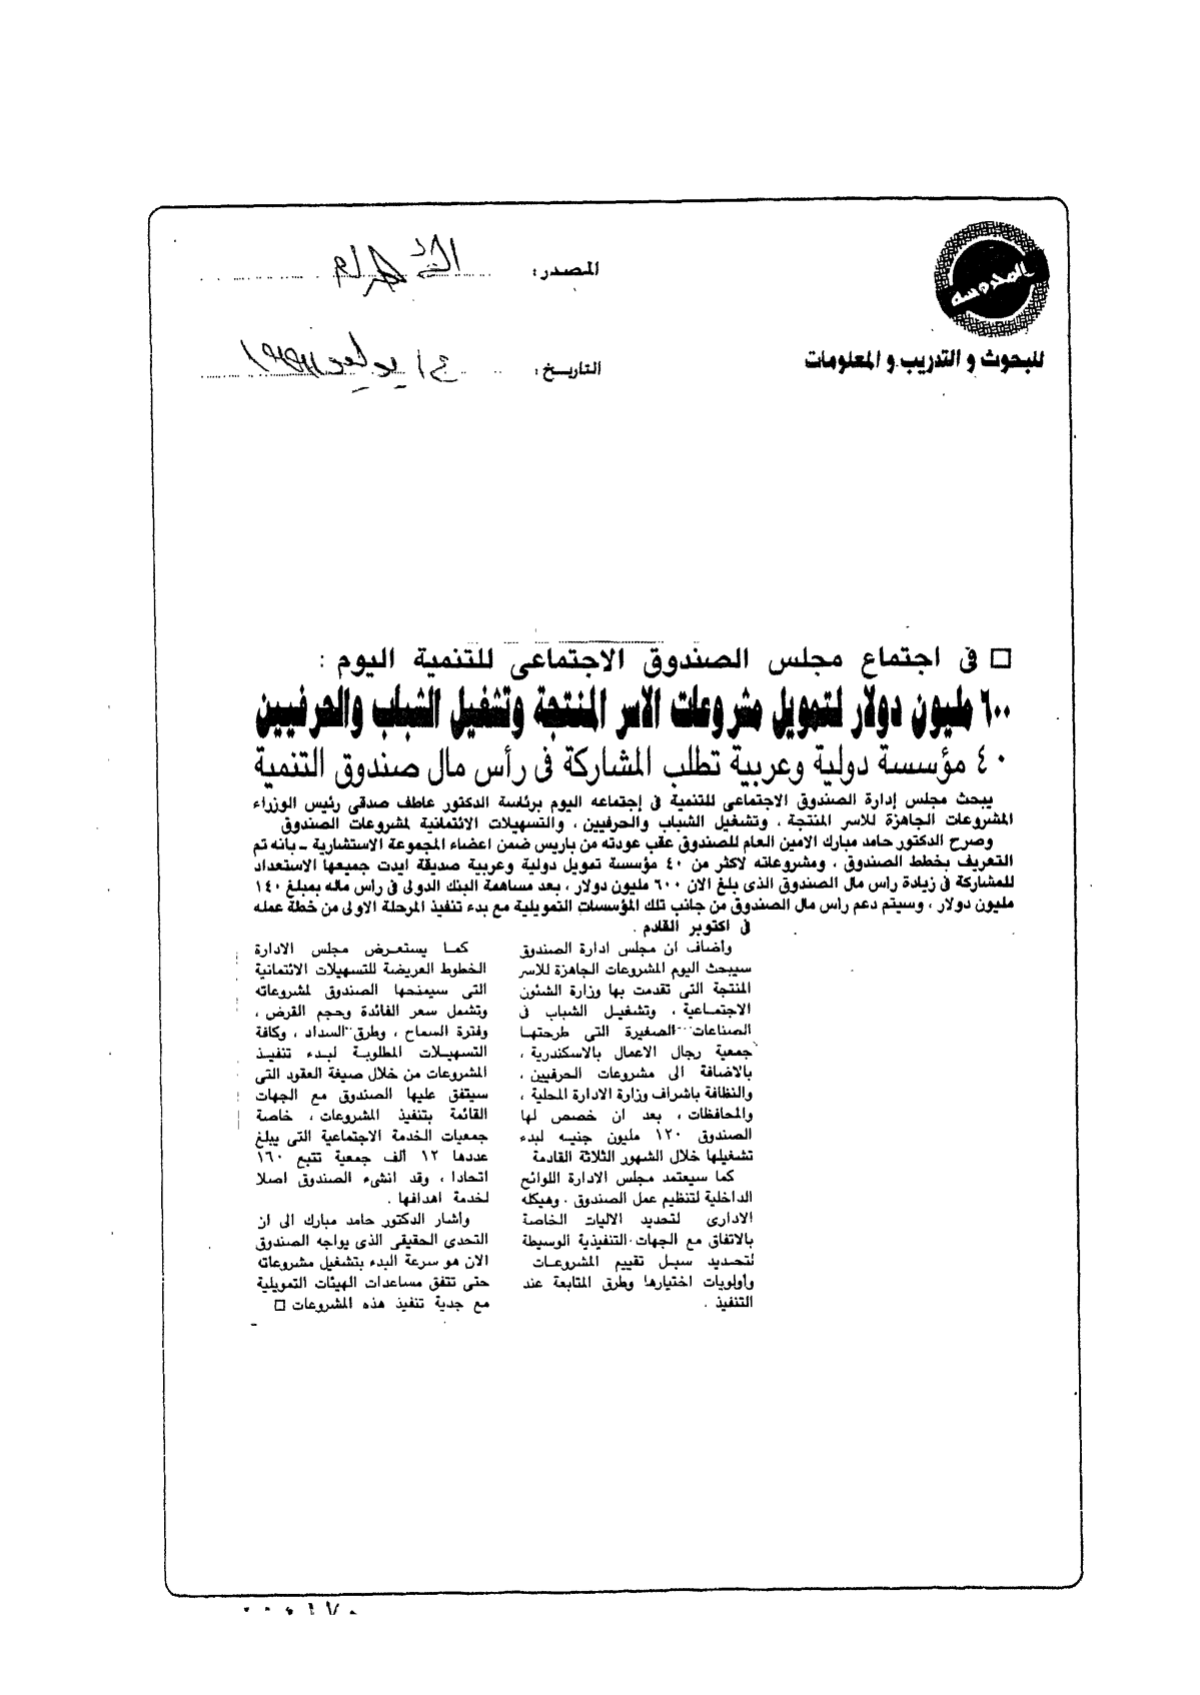 المحروسه
للبحوث و التدريب و المعلومات
المصدر: الأهرام
التاريخ: يوليو ١٩٩١
□ فى اجتماع مجلس الصندوق الاجتماعى للتنمية اليوم :
٦٠٠ مليون دولار لتمويل مشروعات الاسر المنتجة وتشغيل الشباب والحرفيين
٤٠ مؤسسة دولية وعربية تطلب المشاركة فى رأس مال صندوق التنمية
يبحث مجلس إدارة الصندوق الاجتماعى للتنمية فى إجتماعه اليوم برئاسة الدكتور عاطف صدقى رئيس الوزراء
المشروعات الجاهزة للاسر المنتجة ، وتشغيل الشباب والحرفيين ، والتسهيلات الائتمانية لمشروعات الصندوق
وصرح الدكتور حامد مبارك الامين العام للصندوق عقب عودته من باريس ضمن اعضاء المجموعة الاستشارية ـ بانه تم
التعريف بخطط الصندوق ، ومشروعاته لاكثر من ٤٠ مؤسسة تمويل دولية وعربية صديقة ايدت جميعها الاستعداد
للمشاركة فى زيادة راس مال الصندوق الذى بلغ الان ٦٠٠ مليون دولار ، بعد مساهمة البنك الدولى فى راس ماله بمبلغ ١٤٠
مليون دولار ، وسيتم دعم راس مال الصندوق من جانب تلك المؤسسات التمويلية مع بدء تنفيذ المرحلة الاولى من خطة عمله
فى اكتوبر القادم .
وأضاف ان مجلس ادارة الصندوق
سيبحث اليوم المشروعات الجاهزة للاسر
المنتجة التى تقدمت بها وزارة الشئون
الاجتماعية ، وتشغيل الشباب فى
الصناعات الصغيرة التى طرحتها
جمعية رجال الاعمال بالاسكندرية ،
بالاضافة الى مشروعات الحرفيين ،
والنظافة باشراف وزارة الادارة المحلية ،
والمحافظات ، بعد ان خصص لها
الصندوق ١٢٠ مليون جنيه لبدء
تشغيلها خلال الشهور الثلاثة القادمة
كما سيعتمد مجلس الادارة اللوائح
الداخلية لتنظيم عمل الصندوق . وهيكله
الادارى لتحديد الاليات الخاصة
بالاتفاق مع الجهات التنفيذية الوسيطة
لتحديد سبل تقييم المشروعات
وأولويات اختيارها وطرق المتابعة عند
التنفيذ .
كما يستعرض مجلس الادارة
الخطوط العريضة للتسهيلات الائتمانية
التى سيمنحها الصندوق لمشروعاته
وتشمل سعر الفائدة وحجم القرض ،
وفترة السماح ، وطرق السداد ، وكافة
التسهيلات المطلوبة لبدء تنفيذ
المشروعات من خلال صيغة العقود التى
سيتفق عليها الصندوق مع الجهات
القائمة بتنفيذ المشروعات ، خاصة
جمعيات الخدمة الاجتماعية التى يبلغ
عددها ١٢ الف جمعية تتبع ١٦٠
اتحادا ، وقد انشىء الصندوق اصلا
لخدمة اهدافها .
وأشار الدكتور حامد مبارك الى ان
التحدى الحقيقى الذى يواجه الصندوق
الان هو سرعة البدء بتشغيل مشروعاته
حتى تتفق مساعدات الهيئات التمويلية
مع جدية تنفيذ هذه المشروعات □